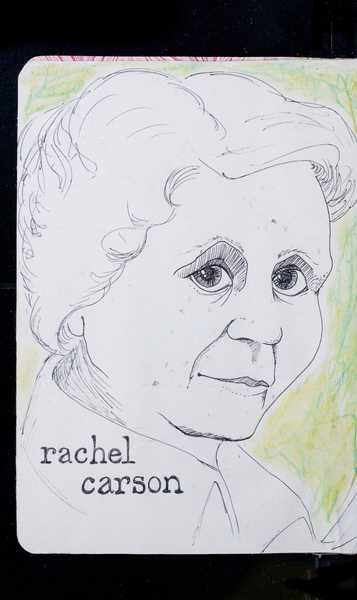 rachel
carson